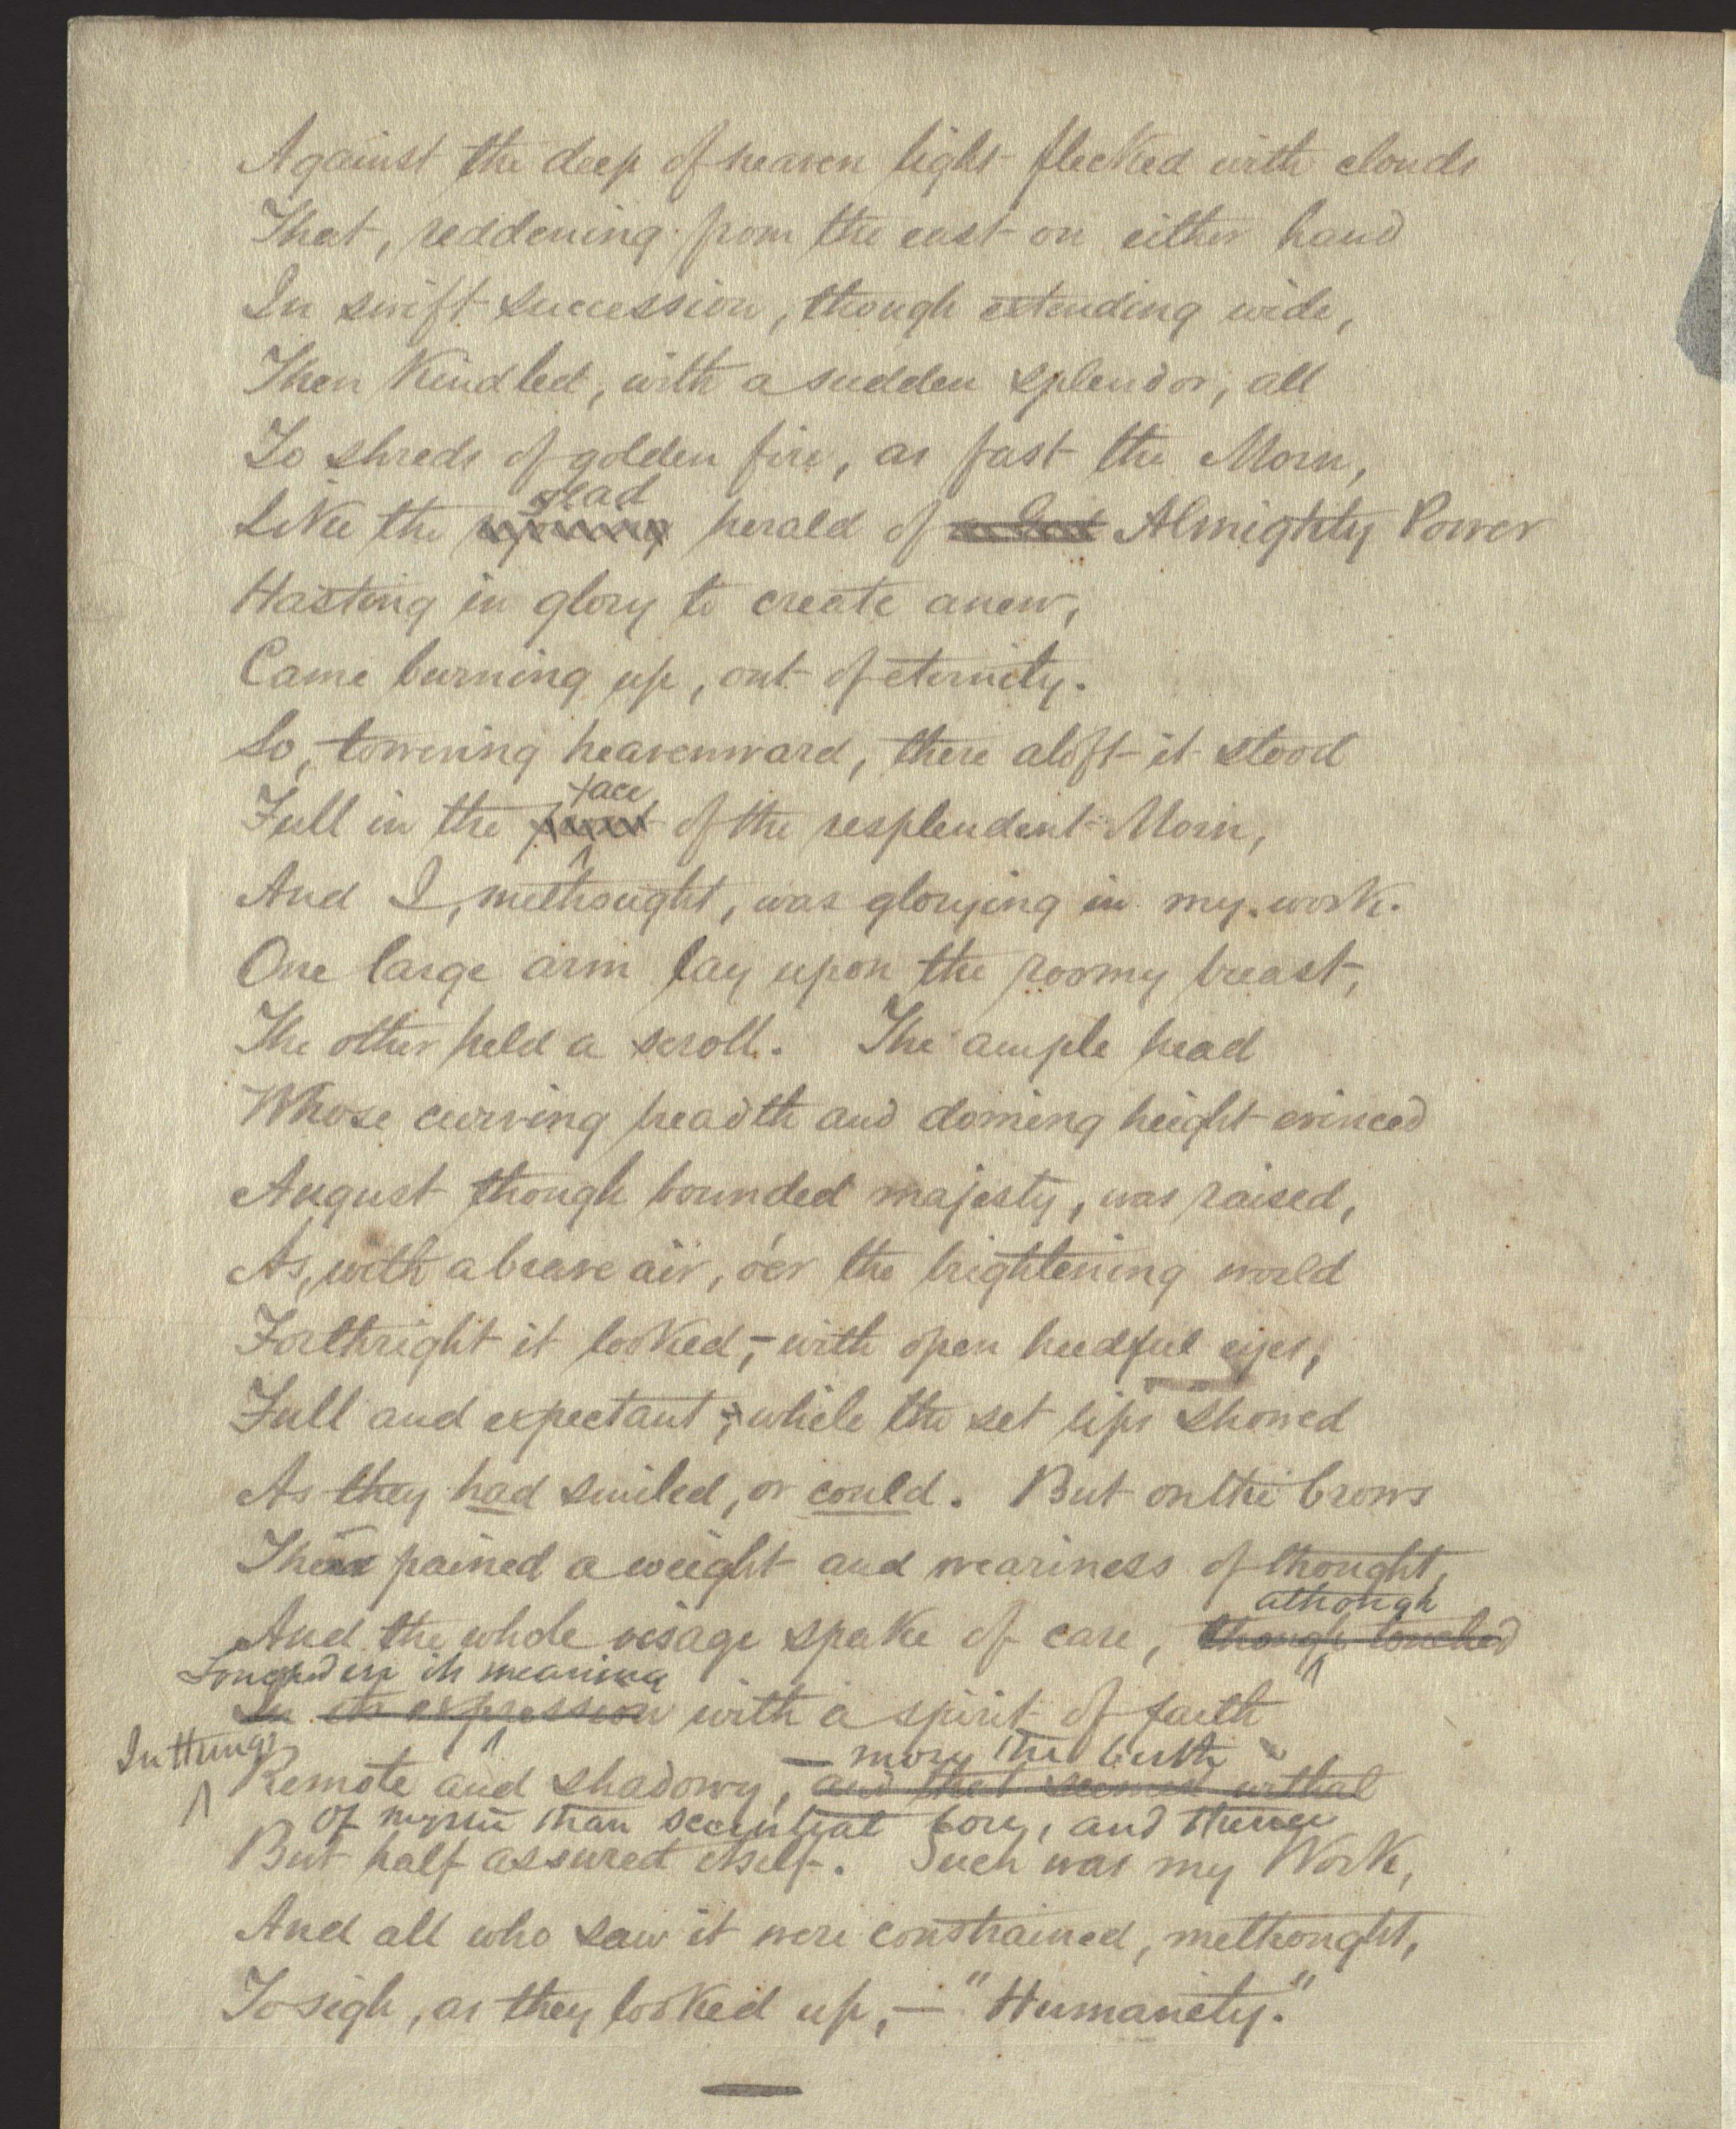 Against the deep of heaven light flecked with clouds
That, reddening from the east on either hand
In swift succession, though extending wide,
Then Kindled, with a sudden splendor, all
To shreds of golden fire, as fast the Morn,
glad
Like the herald of Almighty Power
Hasting in glory to create anew,
Came burning up, out of eternity.
So, towering heavenward, there aloft it stood
face
Full in the of the resplendent Morn,
And I, methought, was glorying in my work.
One large arm lay upon the roomy breast,
The other held a scroll. The ample head
Whose curving breadth and doming height evinced
August though bounded majesty, was raised,
As, with a brave air, o'er the brightening world
Forthright it looked,– with open heedful eyes,
Full and expectant; while the set lips showed
As they had smiled, or could. But on the brows
pained a weight and weariness of thought,
although
And the whole visage spake of care, though touched
Longed in its meaning
In its expression with a spirit of faith
In things
— more the
Remote and shadowy, and that seemed withal
Of than bore, and thence
But half assured itself. Such was my Work,
And all who saw it were constrained, methought,
To sigh, as they looked up,— "Humanity."